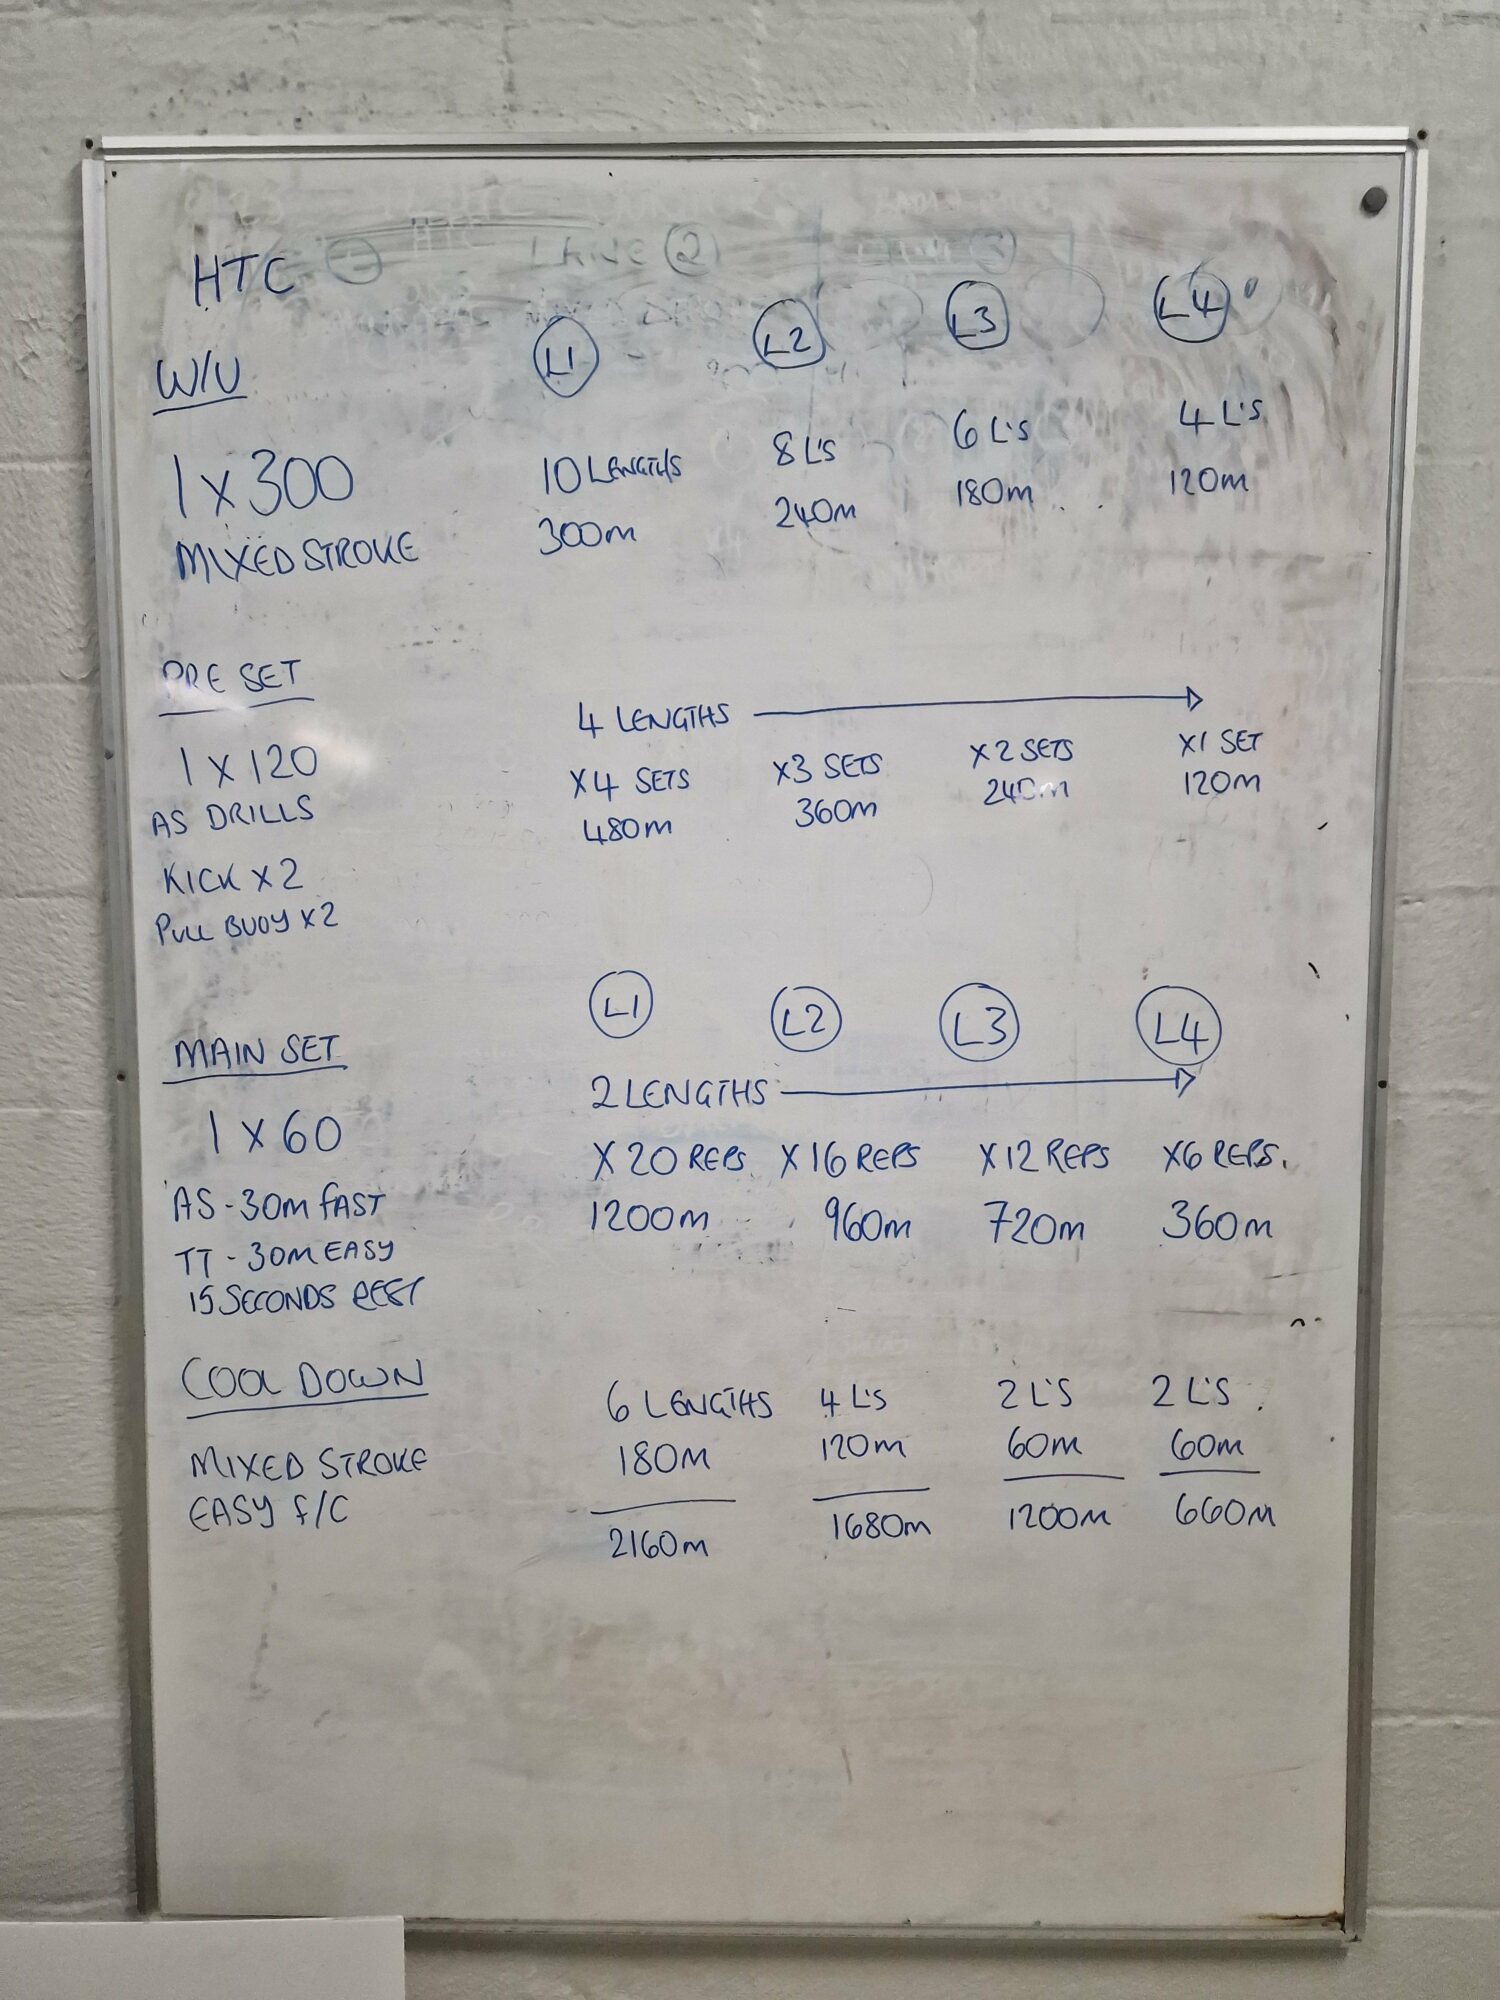 HTC
L1 L2 L3 L4
W/U
1 x 300 10 LENGTHS 8 L'S 6 L'S 4 L'S
MIXED STROKE 300m 240m 180m 120m
PRE SET
4 LENGTHS
1 x 120 x4 SETS x3 SETS x2 SETS x1 SET
AS DRILLS 480m 360m 240m 120m
KICK x 2
PULL BUOY x2
L1 L2 L3 L4
MAIN SET
2 LENGTHS
1 x 60 x 20 REPS x 16 REPS x 12 REPS x6 REPS.
AS - 30m FAST 1200m 960m 720m 360m
TT - 30m EASY
15 SECONDS REST
COOL DOWN 6 LENGTHS 4 L'S 2 L'S 2 L'S
MIXED STROKE 180m 120m 60m 60m
EASY F/C 2160m 1680m 1200m 660m